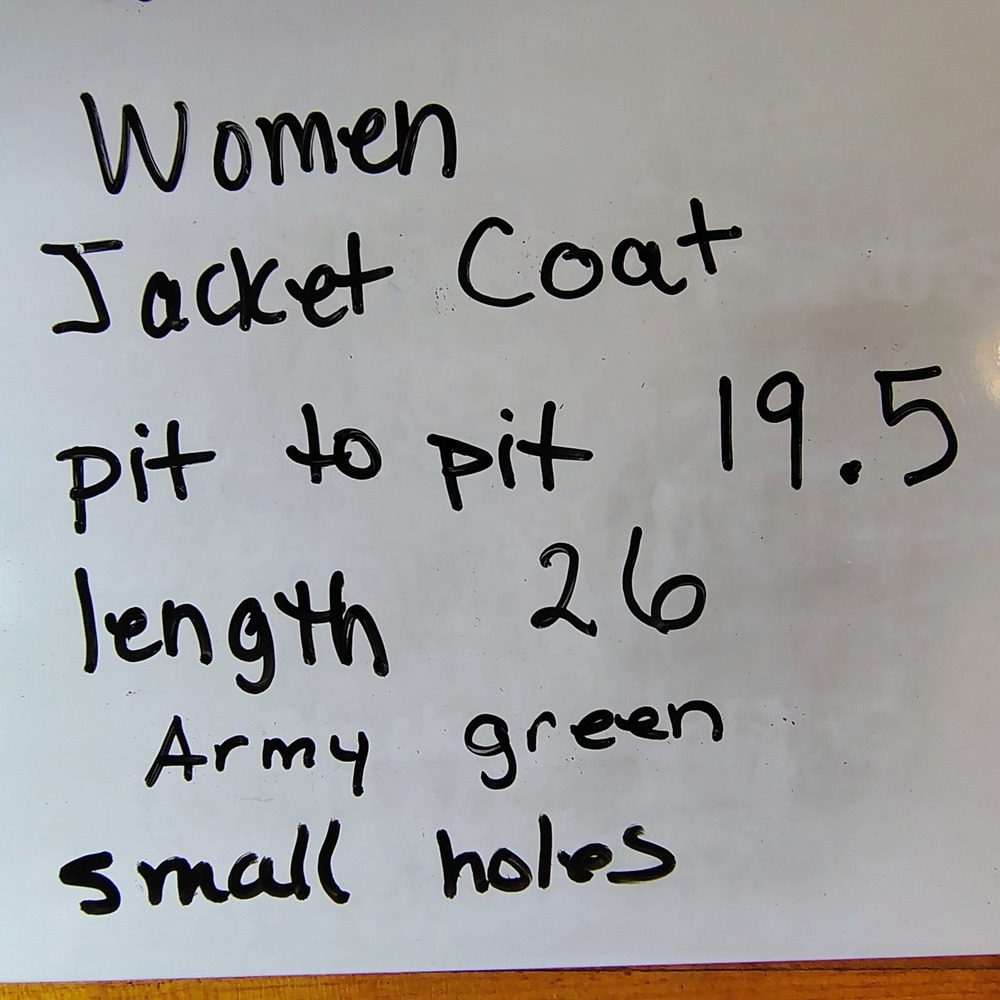 Women
Jacket Coat
pit to pit 19.5
length 26
Army green
small holes